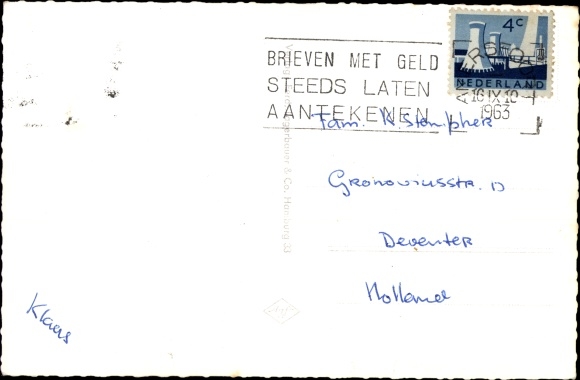 4c
NEDERLAND
BRIEVEN MET GELD
STEEDS LATEN
AANTEKENEN
AMERSFOORT
16 IX 18
1963
Fam. K. Stempher
Gronoviusstr. 13
Deventer
Holland
Klaas
& Co, Hamburg 33